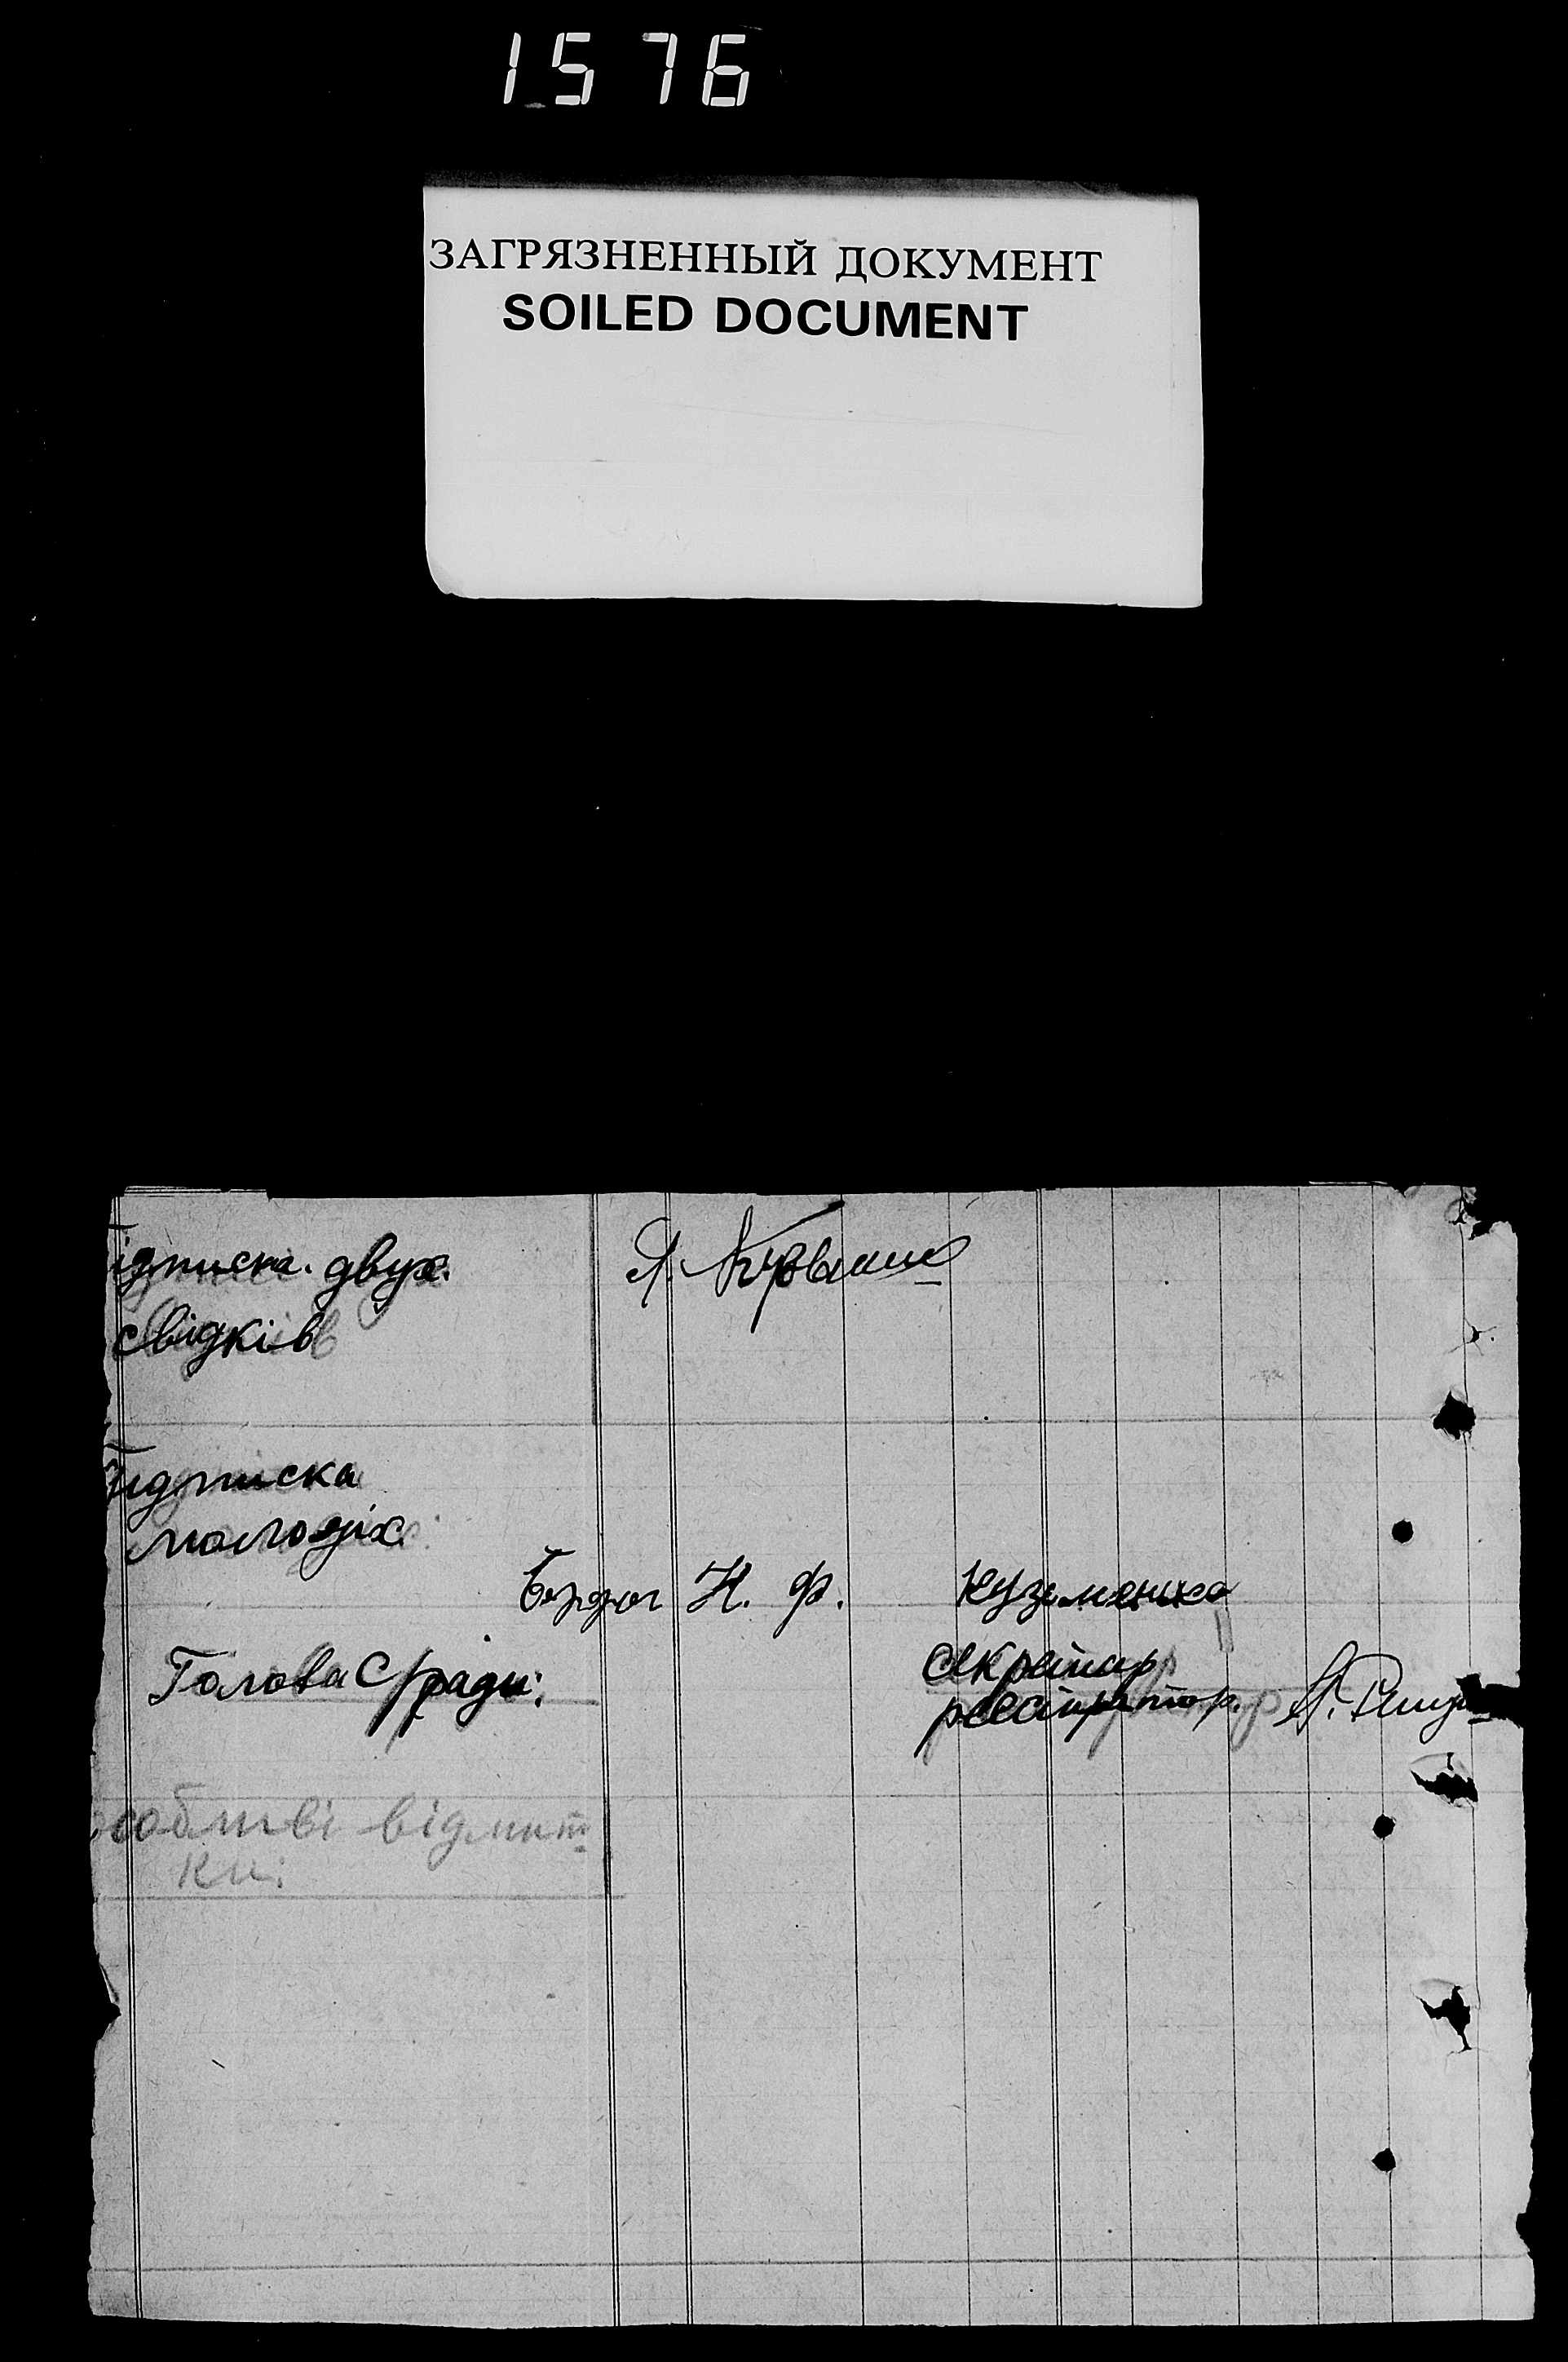 1576
ЗАГРЯЗНЕННЫЙ ДОКУМЕНТ
SOILED DOCUMENT
ідписка. двух.
свідків
Підписка
молодіх.
Н. Ф. Кузьменко
Голова С/ради:
секретар
реєстратор.
особливі відмит=
ки: